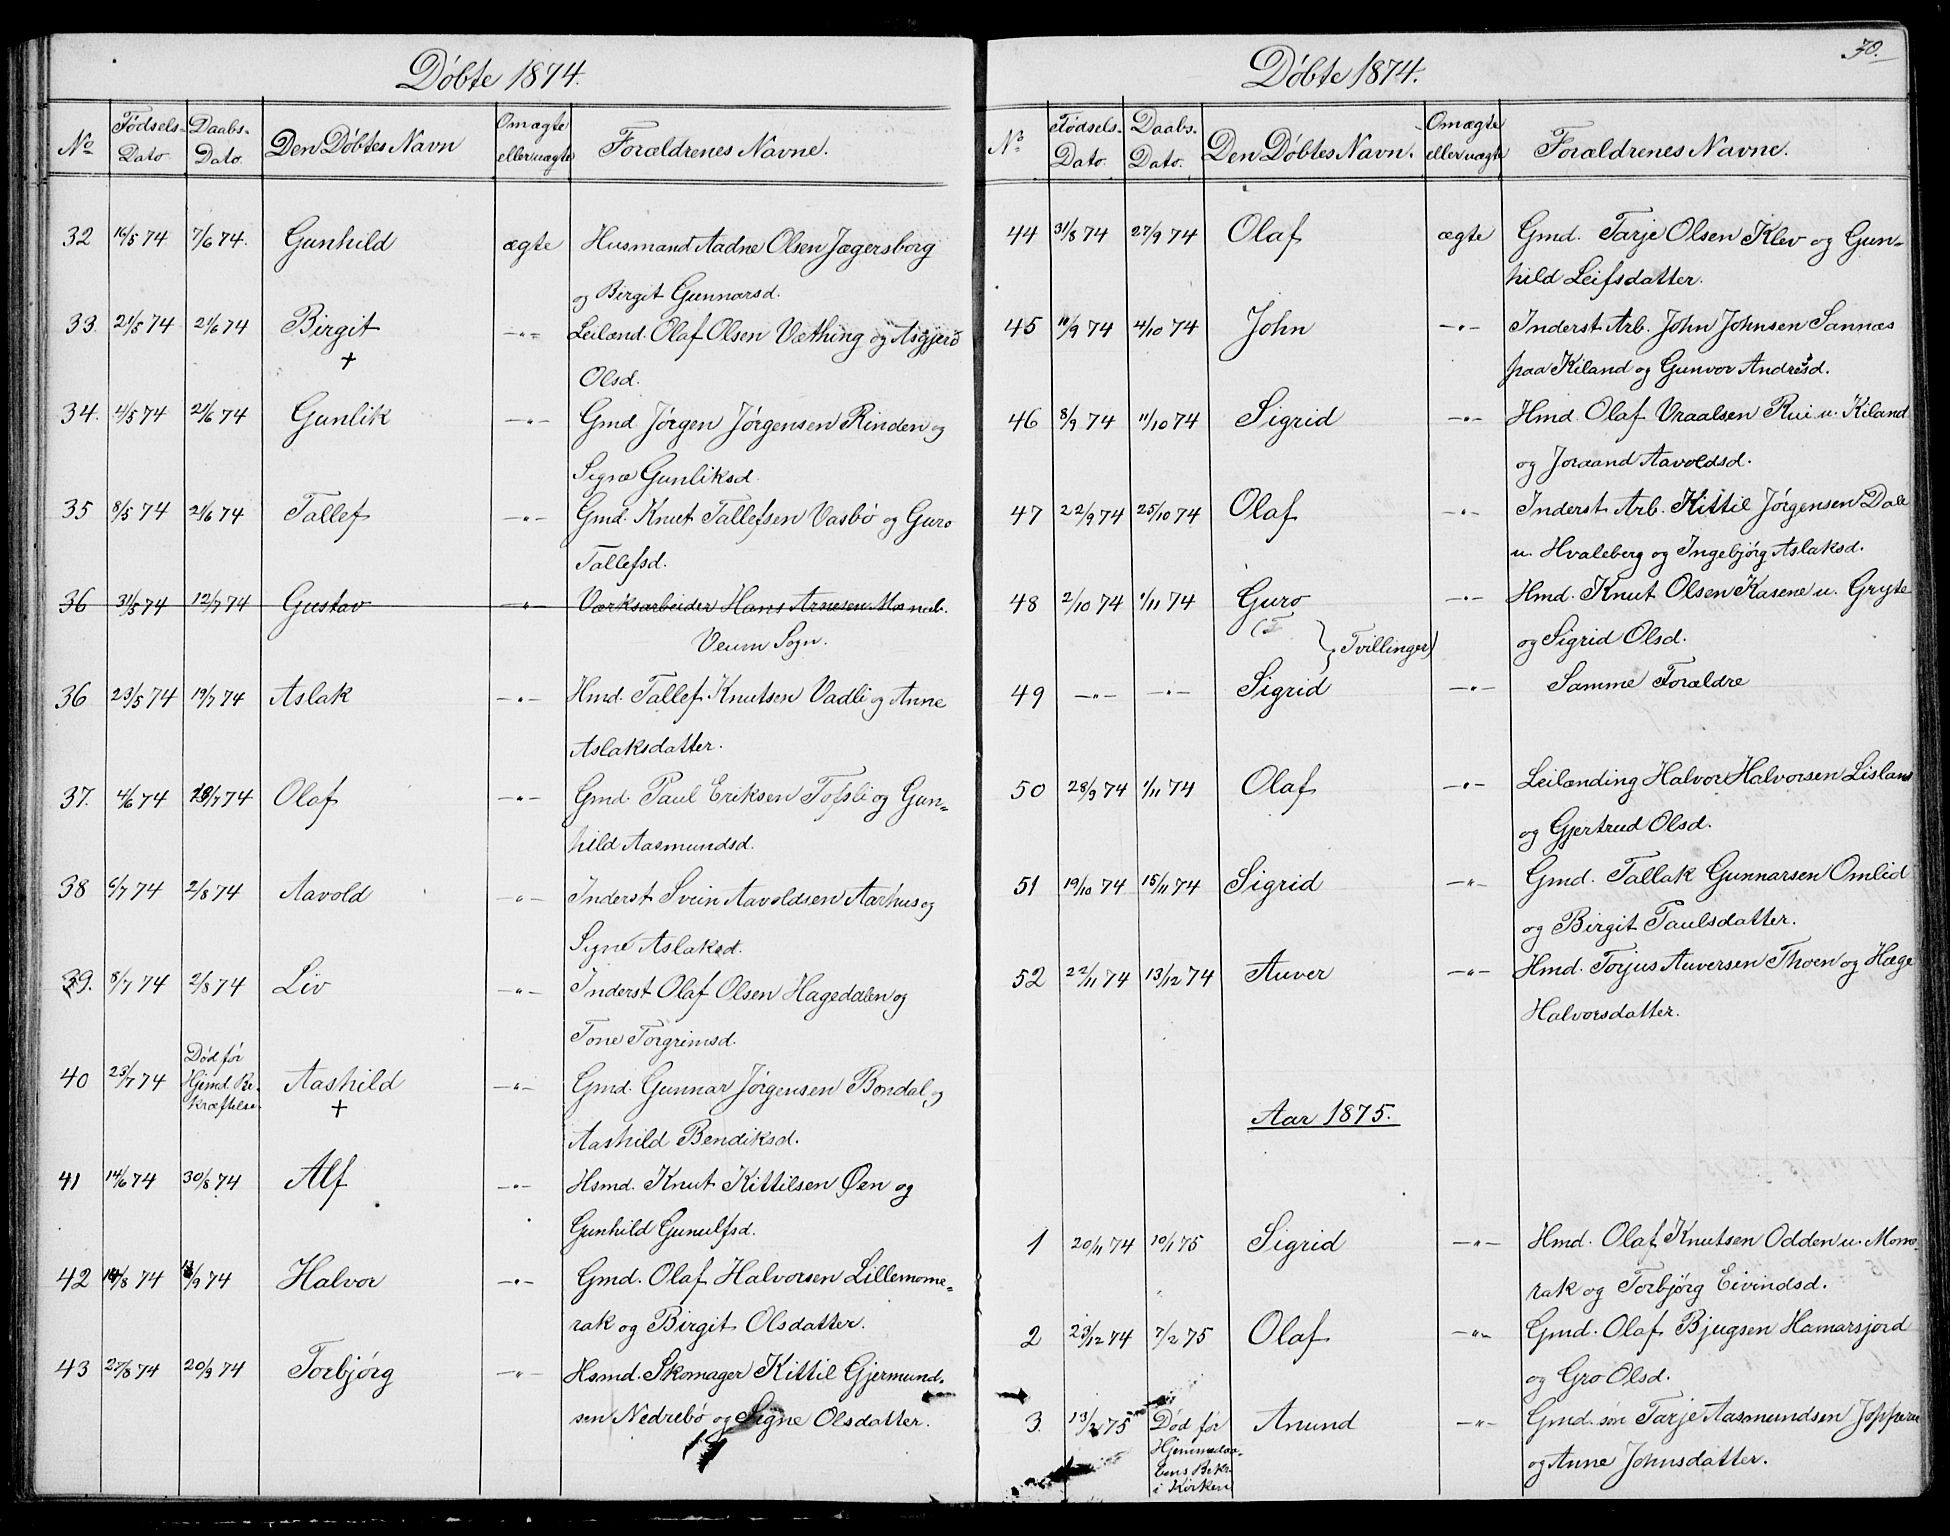 Døbte 1874.
No Fødsels-Dato Daabs-Dato. Den Døbtes Navn Om ægte eller uægte Forældrenes Navne.
32 16/5 74 7/6 74. Gunhild ægte Husmand Aadne Olsen Jægersborg
og Birgit Gunnarsd.
33 21/5 74 21/6 74 Birgit —„— Leilænd. Olaf Olsen Væthing og Asgjerd
+ Olsd.
34. 4/5 74 21/6 74 Gunlik —„— Gmd Jørgen Jørgensen Rinden og
Signe Gunliksd.
35 8/5 74 21/6 74 Tallef —„— Gmd. Knut Tallefsen Vasbø og Guro
Tallefsd.
36 31/5 74 12/7 74 Gustav —„— Værksarbeider Hans Arnesen
Veum Sogn.
36 23/5 74 19/7 74 Aslak —„— Hmd. Tallef Knutsen Vadli og Anne
Aslaksdatter.
37. 4/6 74 /7 74 Olaf —„— Gmd. Paul Eriksen Tofsli og Gun-
hild Aasmundsd.
38 6/7 74 2/8 74 Aavold —„— Inderst Svein Aavoldsen Aarhus og
Signe Aslaksd.
39. 8/7 74 2/8 74 Liv —„— Inderst Olaf Olsen Hageddlen og
Tone Torgrimsd.
40 23/7 74 Død før Hjmd. Be-kræftelse. Aashild —„— Gmd. Gunnar Jørgensen Bondal, og
+ Aashild Bendiksd.
41 14/6 74 30/8 74 Alf —„— Hsmd. Knut Kittilsen Øen og
Gunhild Gunulfsd.
42 /8 74 13/9 74 Halvor —„— Gmd. Olaf Halvorsen Lillemome-
rak og Birgit Olsdatter.
43 27/8 74 20/9 74 Torbjørg —„— Hsmd. Skomager Kittil Gjermund-
sen Nedrebø og Signe Olsdatter.
70.
Døbte 1874.
No Fødsels-Dato. Daabs-Dato. Den Døbtes Navn. Om ægte eller uægte Forældrenes Navne.
44 31/8 74 27/9 74 Olaf ægte Gmd. Tarje Olsen Klev og Gun-
hild Leifsdatter.
45 10/9 74 4/10 74 John —„— Inderst Arb. John Johnsen Sannæs
paa Kiland og Gunvor Andresd.
46 8/9 74 11/10 74 Sigrid —„— Hmd. Olaf Vraalsen Rui u. Kiland
og Joraand Aavoldsd.
47 22/9 74 25/10 74 Olaf —„— Inderst Arb. Kittil Jørgensen Dale
u. Hvaleberg og Ingebjørg Aslaksd.
48 2/10 74 1/11 74 Guro —„— Hmd. Knut Olsen Kasene u. Gryte
(T } Tvillinger) og Sigrid Olsd.
49 —„— —„— Sigrid —„— Samme Forældre
50 28/9 74 1/11 74 Olaf —„— Leilænding Halvor Halvorsen Lisland
og Gjertrud Olsd.
51 19/10 74 15/11 74 Sigrid —„— Gmd. Tallak Gunnarsen Omlid
og Birgit Paulsdatter.
52 22/11 74 13/12 74 Auver —„— Hmd. Torjus Auversen Thoen og Hæge
Halvorsdatter.
Aar 1875.
1 20/11 74 10/1 75 Sigrid —„— Hmd. Olaf Knutsen Odden u. Momo-
rak og Torbjørg Eivindsd.
2 23/12 74 7/2 75 Olaf —„— Gmd. Olaf Bjugsen Hamarsjord
og Gro Olsd.
3. 13/2 75 Død før Hjemmedaa-bens Bekr. i Kirken Anund —„— Gmd. søn Tarje Aasmundsen
og Anne Johnsdatter.